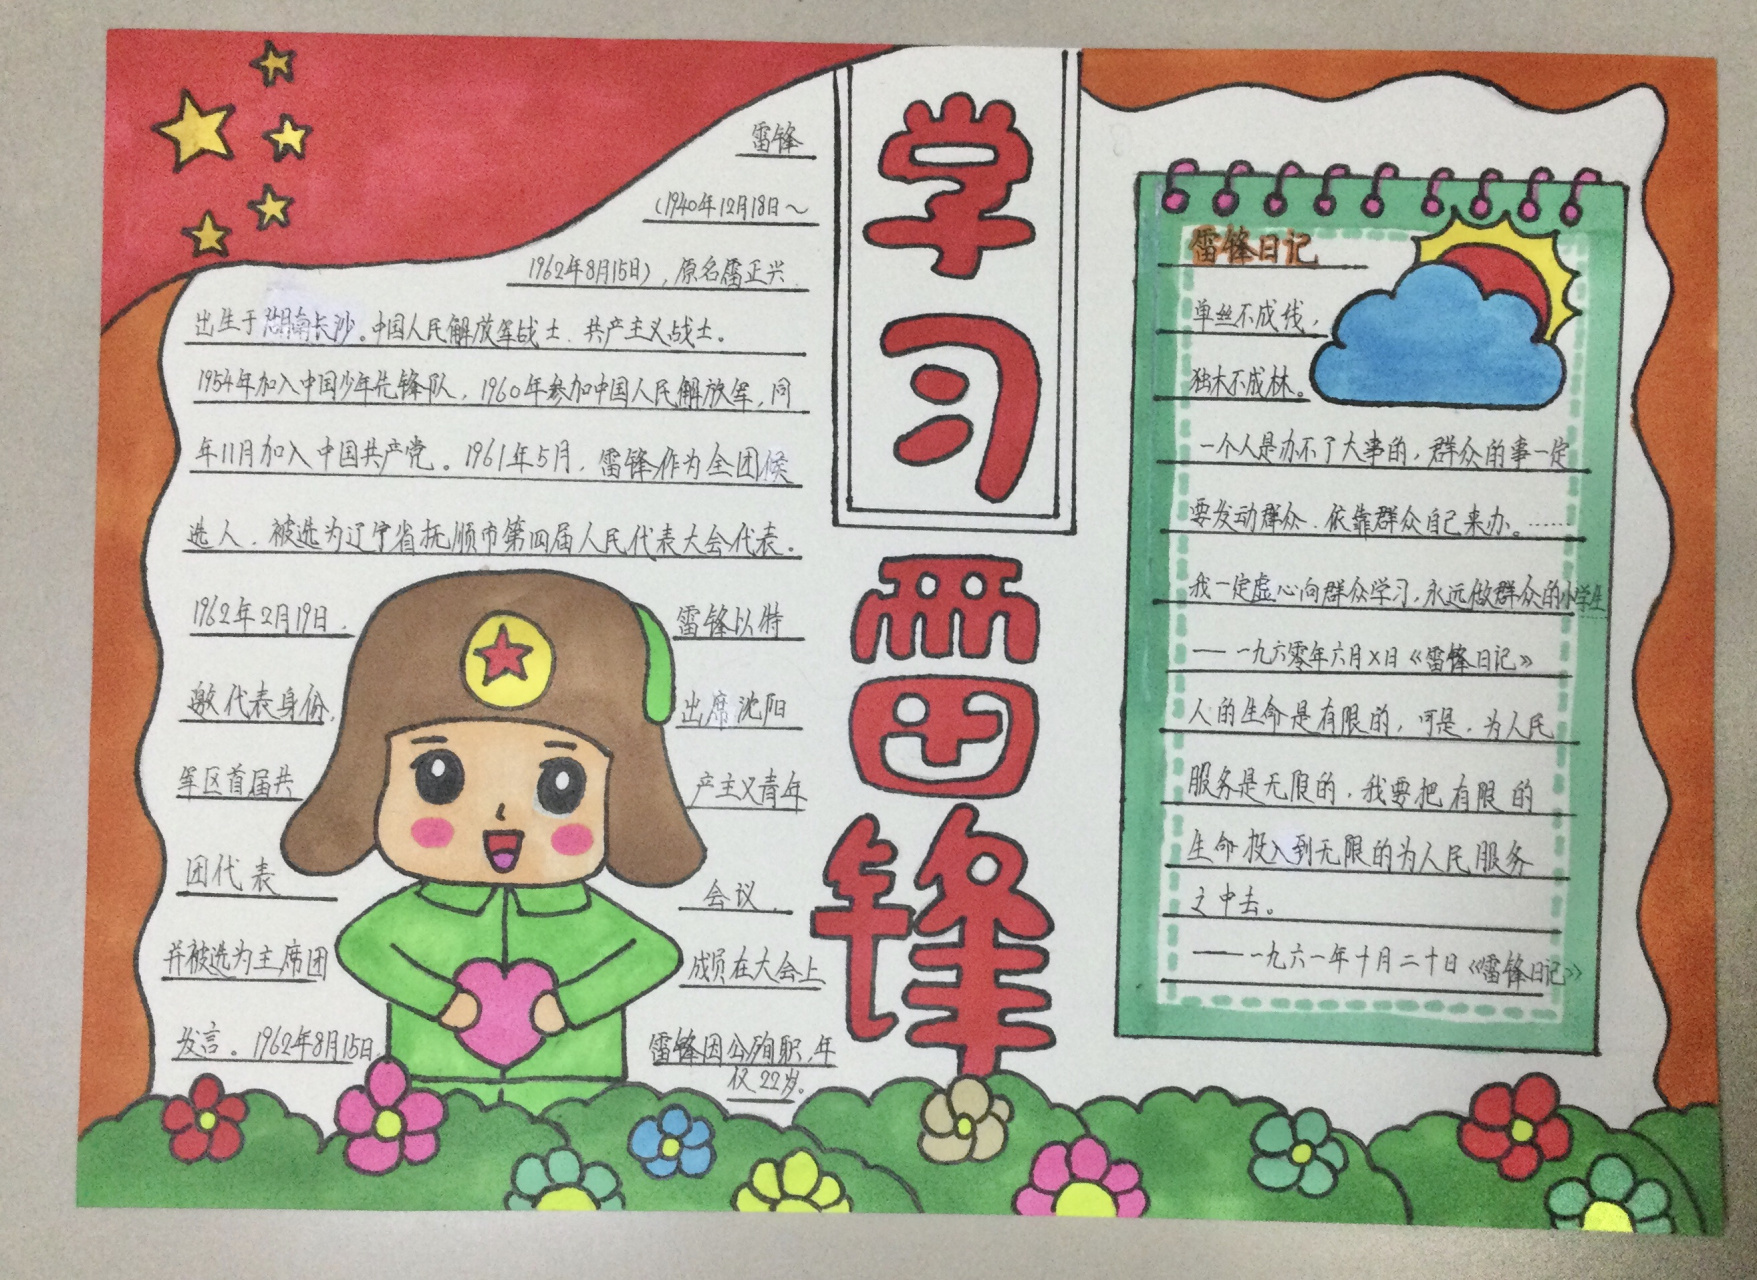 学习雷锋
雷锋
(1940年12月18日～
1962年8月15日)，原名雷正兴
出生于湖南长沙。中国人民解放军战士、共产主义战士。
1954年加入中国少年先锋队，1960年参加中国人民解放军，同
年11月加入中国共产党。1961年5月，雷锋作为全团候
选人，被选为辽宁省抚顺市第四届人民代表大会代表。
1962年2月19日，雷锋以特
邀代表身份，出席沈阳
军区首届共产主义青年
团代表会议，
并被选为主席团成员在大会上
发言。1962年8月15日，雷锋因公殉职，年
仅22岁。
雷锋日记
单丝不成线，
独木不成林。
一个人是办不了大事的，群众的事一定
要发动群众、依靠群众自己来办。……
我一定虚心向群众学习，永远做群众的小学生
——一九六零年六月X日《雷锋日记》
人的生命是有限的，可是，为人民
服务是无限的，我要把有限的
生命投入到无限的为人民服务
之中去。
——一九六一年十月二十日《雷锋日记》